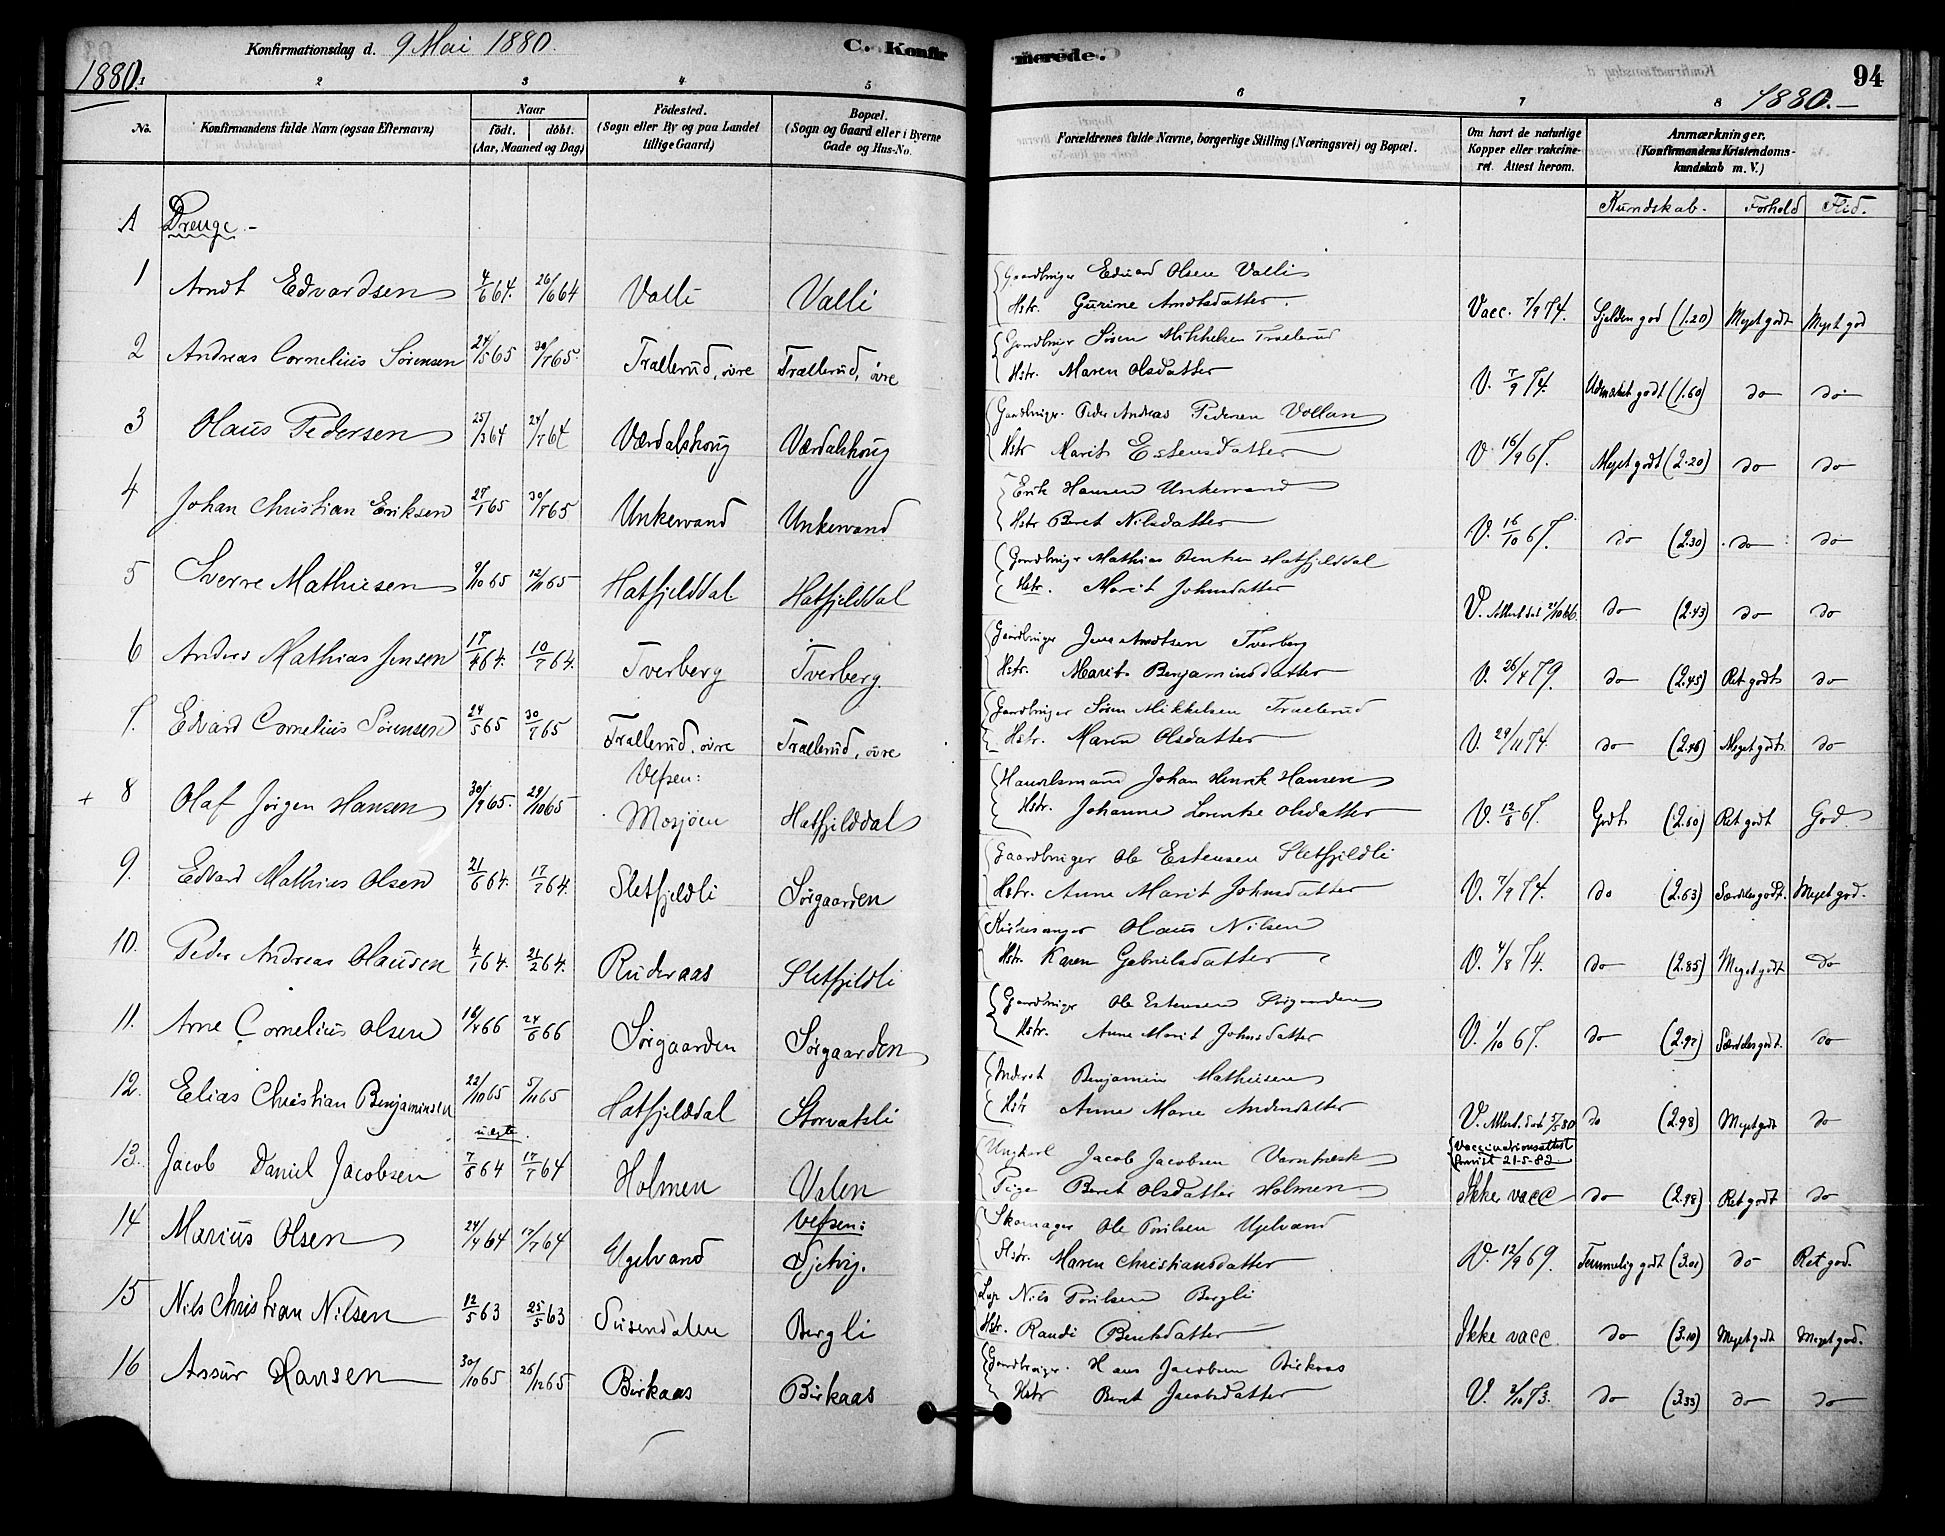 Konfirmationsdag d. 9 Mai 1880. C. Konfirmerede. 94
1880. 1880.-
1 2 3 4 5 6 7 8
No. Konfirmandens fulde Navn (ogsaa Efternavn) Naar födt. döbt. (Aar, Maaned og Dag) Födested. (Sogn eller By og paa Landet tillige Gaard) Bopæl. (Sogn og Gaard eller i Byerne Gade og Hus-No. Forældrenes fulde Navne, borgerlige Stilling (Næringsvei) og Bopæl. Om havt de naturlige Kopper eller vakcineret. Attest herom. Anmærkninger. (Konfirmandens Kristendomskundskab m. V.)
Kundskab. Forhold Flid.
A Drenge.-
1 Arndt Edvardsen 4/6 64. 26/6 64 Valli Valli Gaardbruger Edvard Olsen Valli
Hstr. Gurine Arndtsdatter. Vacc. 7/9 74. Sjelden god (1.20) Meget godt Meget god
2 Andreas Cornelius Sørensen 24/5 65 30/7 65 Trællerud, øvre Trællerud, øvre Gaardbruger Søren Mikkelsen Trællerud
Hstr. Maren Olsdatter V. 7/9 74. Udmærket godt (1.60) do do
3 Olaus Pedersen 25/3 64 24/7 64 Værdalshoug Værdalshoug Gaardbruger. Peder Andreas Pedersen Vollan
Hstr Marit Estensdatter V 16/9 67. Meget godt (2.20) do do
4 Johan Christian Eriksen 27/1 65 30/7 65 Unkervand Unkervand Erik Hansen Unkervand
Hstr Beret Nilsdatter V. 16/10 67. do (2.30) do do
5 Sverre Mathiesen 9/10 65 12/11 65 Hatfjelddal Hatfjelddal Gaardbruger Mathias Bentsen Hatfjelddal
Hstr. Marit Johnsdatter V. do (2.43) do do
6 Anders Mathias Jensen 17/4 64. 10/7 64. Tverberg Tverberg. Gaardbruger Jens Arndtsen Tverberg
Hstr. Marit Benjaminsdatter V. 26/4 79. do (2.45) Ret godt do
7. Edvard Cornelius Sørensen 24/5 65 30/7 65 Trællerud, øvre Trællerud, øvre Gaardbruger Søren Mikkelsen Trællerud
Hstr. Maren Olsdatter V. 29/11 74. do (2.46) Meget godt do
+ 8 Olaf Jørgen Hansen 30/9 65. 29/10 65 Vefsen: Mosjøen Hatfjelddal Handelsmand Johan Henrik Hansen
Hstr. Johanne Lorentse Olsdatter V. 12/6 67. Godt (2.60) Ret godt God
9. Edvard Mathias Olsen 21/6 64. 17/7 64. Sletfjeldli Sørgaarden Gaardbruger Ole Estensen Sletfjeldli
Hstr. Anne Marit Johnsdatter V. 7/9 74. do (2.63) Særdeles godt. Meget god.
10. Peder Andreas Olausen 4/1 64. 21/2 64. Ruderaas Sletfjeldli Kirkesanger Olaus Nilsen
Hstr. Karen Gabrielsdatter V. 4/8 74. do (2.85) Meget godt do
11. Arne Cornelius Olsen 16/4 66 24/6 66 Sørgaarden Sørgaarden Gaardbruger Ole Estensen Sørgaarden
Hstr. Anne Marit Johnsdatter V. 1/10 67. do (2.97) Særdeles godt. do
12. Elias Christian Benjaminsen 22/10 65 5/11 65 Hatfjelddal Storvatsli Inderst Benjamin Mathiesen
Hstr Anne Marie Andersdatter V. do (2.98) Meget godt do
13. Jacob Daniel Jacobsen uægte. 7/6 64 17/7 64 Holmen Valen Ungkarl Jacob Jacobsen Varntræsk
Pige Beret Olsdatter Holmen Vaccinationsattest 21-5-82 Ikke vacc do (2.98) Ret godt do
14 Marius Olsen 24/4 64 17/7 64 Ugelvand Vefsen: Skomager Ole Poulsen Ugelvand
Hstr. Maren Christiansdatter V. 12/9 69. Temmelig godt (3.01) do Ret god.
15 Nils Christian Nilsen 12/5 63 25/5 63 Susendalen Bergli Lap Nils Poulsen Bergli
Hstr. Randi Bentsdatter Ikke vacc. do (3.10) Meget godt Meget god.
16 Assur Hansen 30/10 65 26/12 65 Birkaas Birkaas Gaardbruger. Hans Jacobsen Birkaas
Hstr Beret Jacobsdatter V. 2/10 73. do (3.33) do do